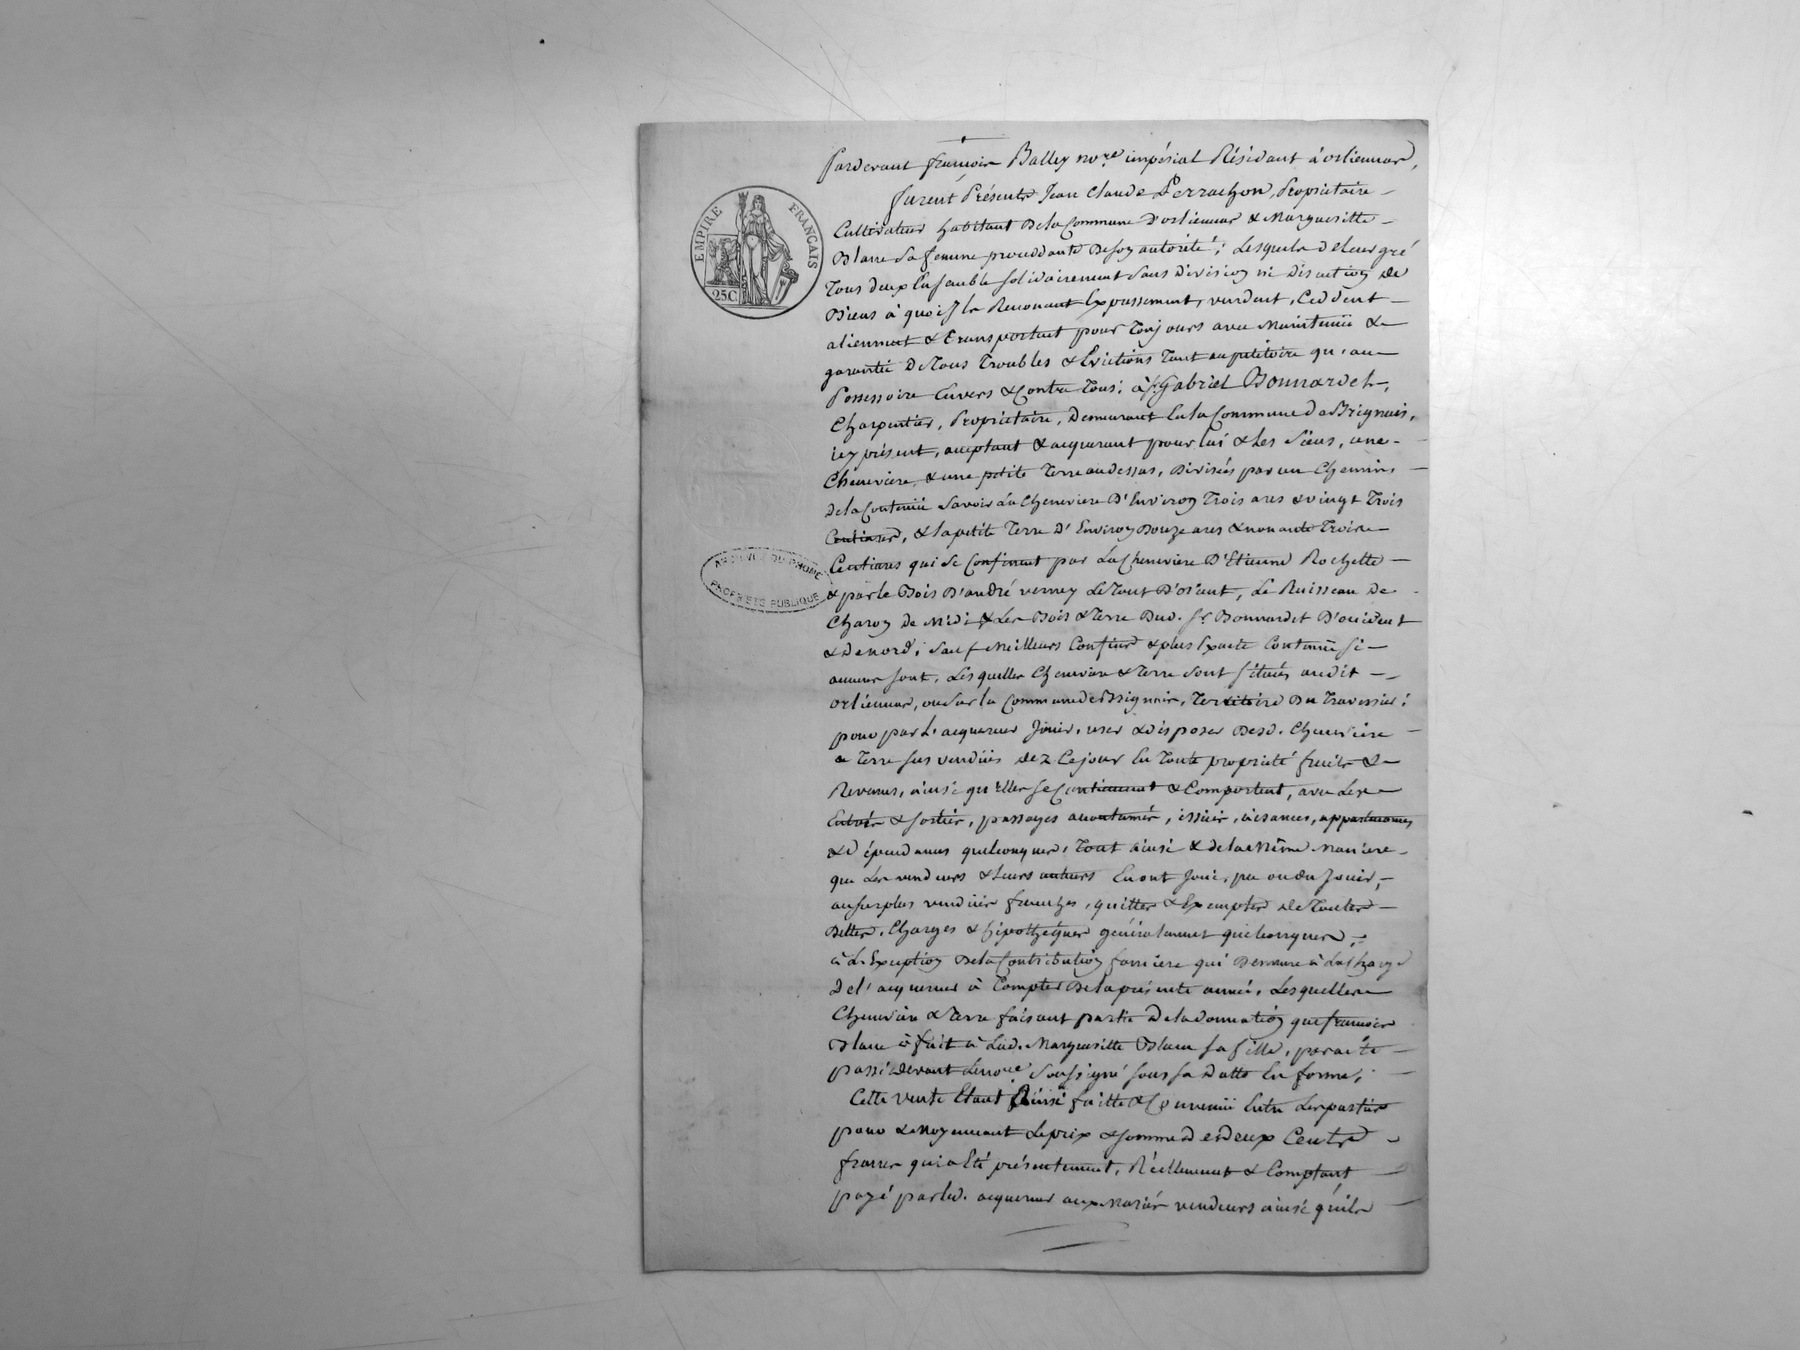 Pardevant françois Balley no.re impérial Résidant à orlienuar,
furent Présents Jean Claude Perrachon, Propriétaire
Cultivateur habitant De la Commune D'orlienuar & Margueritte
Blanc Sa femme proceddante De son autorité; Lesquels de leur gré
Tous deux Ensemble solidairement sans Division ni Discution de
Biens à quoi ils Renoncent Expressement, vendent, Ceddent
alienent & transportent pour Toujours avec Maintenüe &
garantie De Tous Troubles & Evictions Tant au petitoire qu'au
Possessoire Envers & Contre Tous; à Sr. Gabriel Bonnardet,
Charpentier, Propriétaire, Demeurant En la Commune de Brignais,
icy présent, acceptant & acquerant pour lui & Les Siens, une
Cheneviere, & une petite Terre au dessus, Divisées par un Chemin
de la Contenüe Savoir La Cheneviere D'Environ Trois ares & vingt Trois
Centiares, & la petite Terre D'Environ Douze ares & nonante Trois
Centiares qui Se Confinent par La Cheneviere D'Etienne Rochette
& par le Bois D'andré verney Le Tout D'orient, Le Ruisseau de
Charon de Midi & Les Bois & Terre Dud. Sr. Bonnardet D'occident
& de nord; Sauf Meilleurs Confins & plus Exacte Contenüe Si
aucuns sont, Lesquelles Cheneviere & Terre Sont Situées audit
orlienuar, ou Sur la Commune de Brignais, Territoire Du Traversier;
pour par L'acquereur Jouir, user & disposer Desd. Cheneviere
& Terre sus vendües dez Ce jour En Toute propriété fruits &
Revenus, ainsi qu'Elles se Contiennent & Comportent, avec Les
Entrées & sorties, passages accoutumés, issües, aisances, appartenances
& dépendances quelconques, Tout ainsi & de la Même Maniere
que Les vendeurs & Leurs auteurs En ont Joui, pu ou du Jouir,
au surplus vendües franches, quittes & Exemptes de Toutes
Dettes, Charges & hipothèques généralement quelconques,
à L'Exception De la Contribution fonciere qui Demeure à La Charge
de l'acquereur à Compter De la présente année, Lesquelles
Cheneviere & Terre faisant partie De la Donnation que françois
Blanc à fait à Lad. Marguerite Blanc sa fille, par acte
passé devant Le no.re Soussigné sous sa Datte En forme;
Cette vente Etant Ainsi faitte & Convenüe Entre Les parties
pour & Moyennant Le prix & somme de Deux Cents
francs qui a Eté présentement, Réellement & Comptant
payé par led. acquereur aux Mariés vendeurs ainsi qu'ils
EMPIRE FRANÇAIS
25C
ARCHIVES DU RHÔNE
PROPRIÉTÉ PUBLIQUE